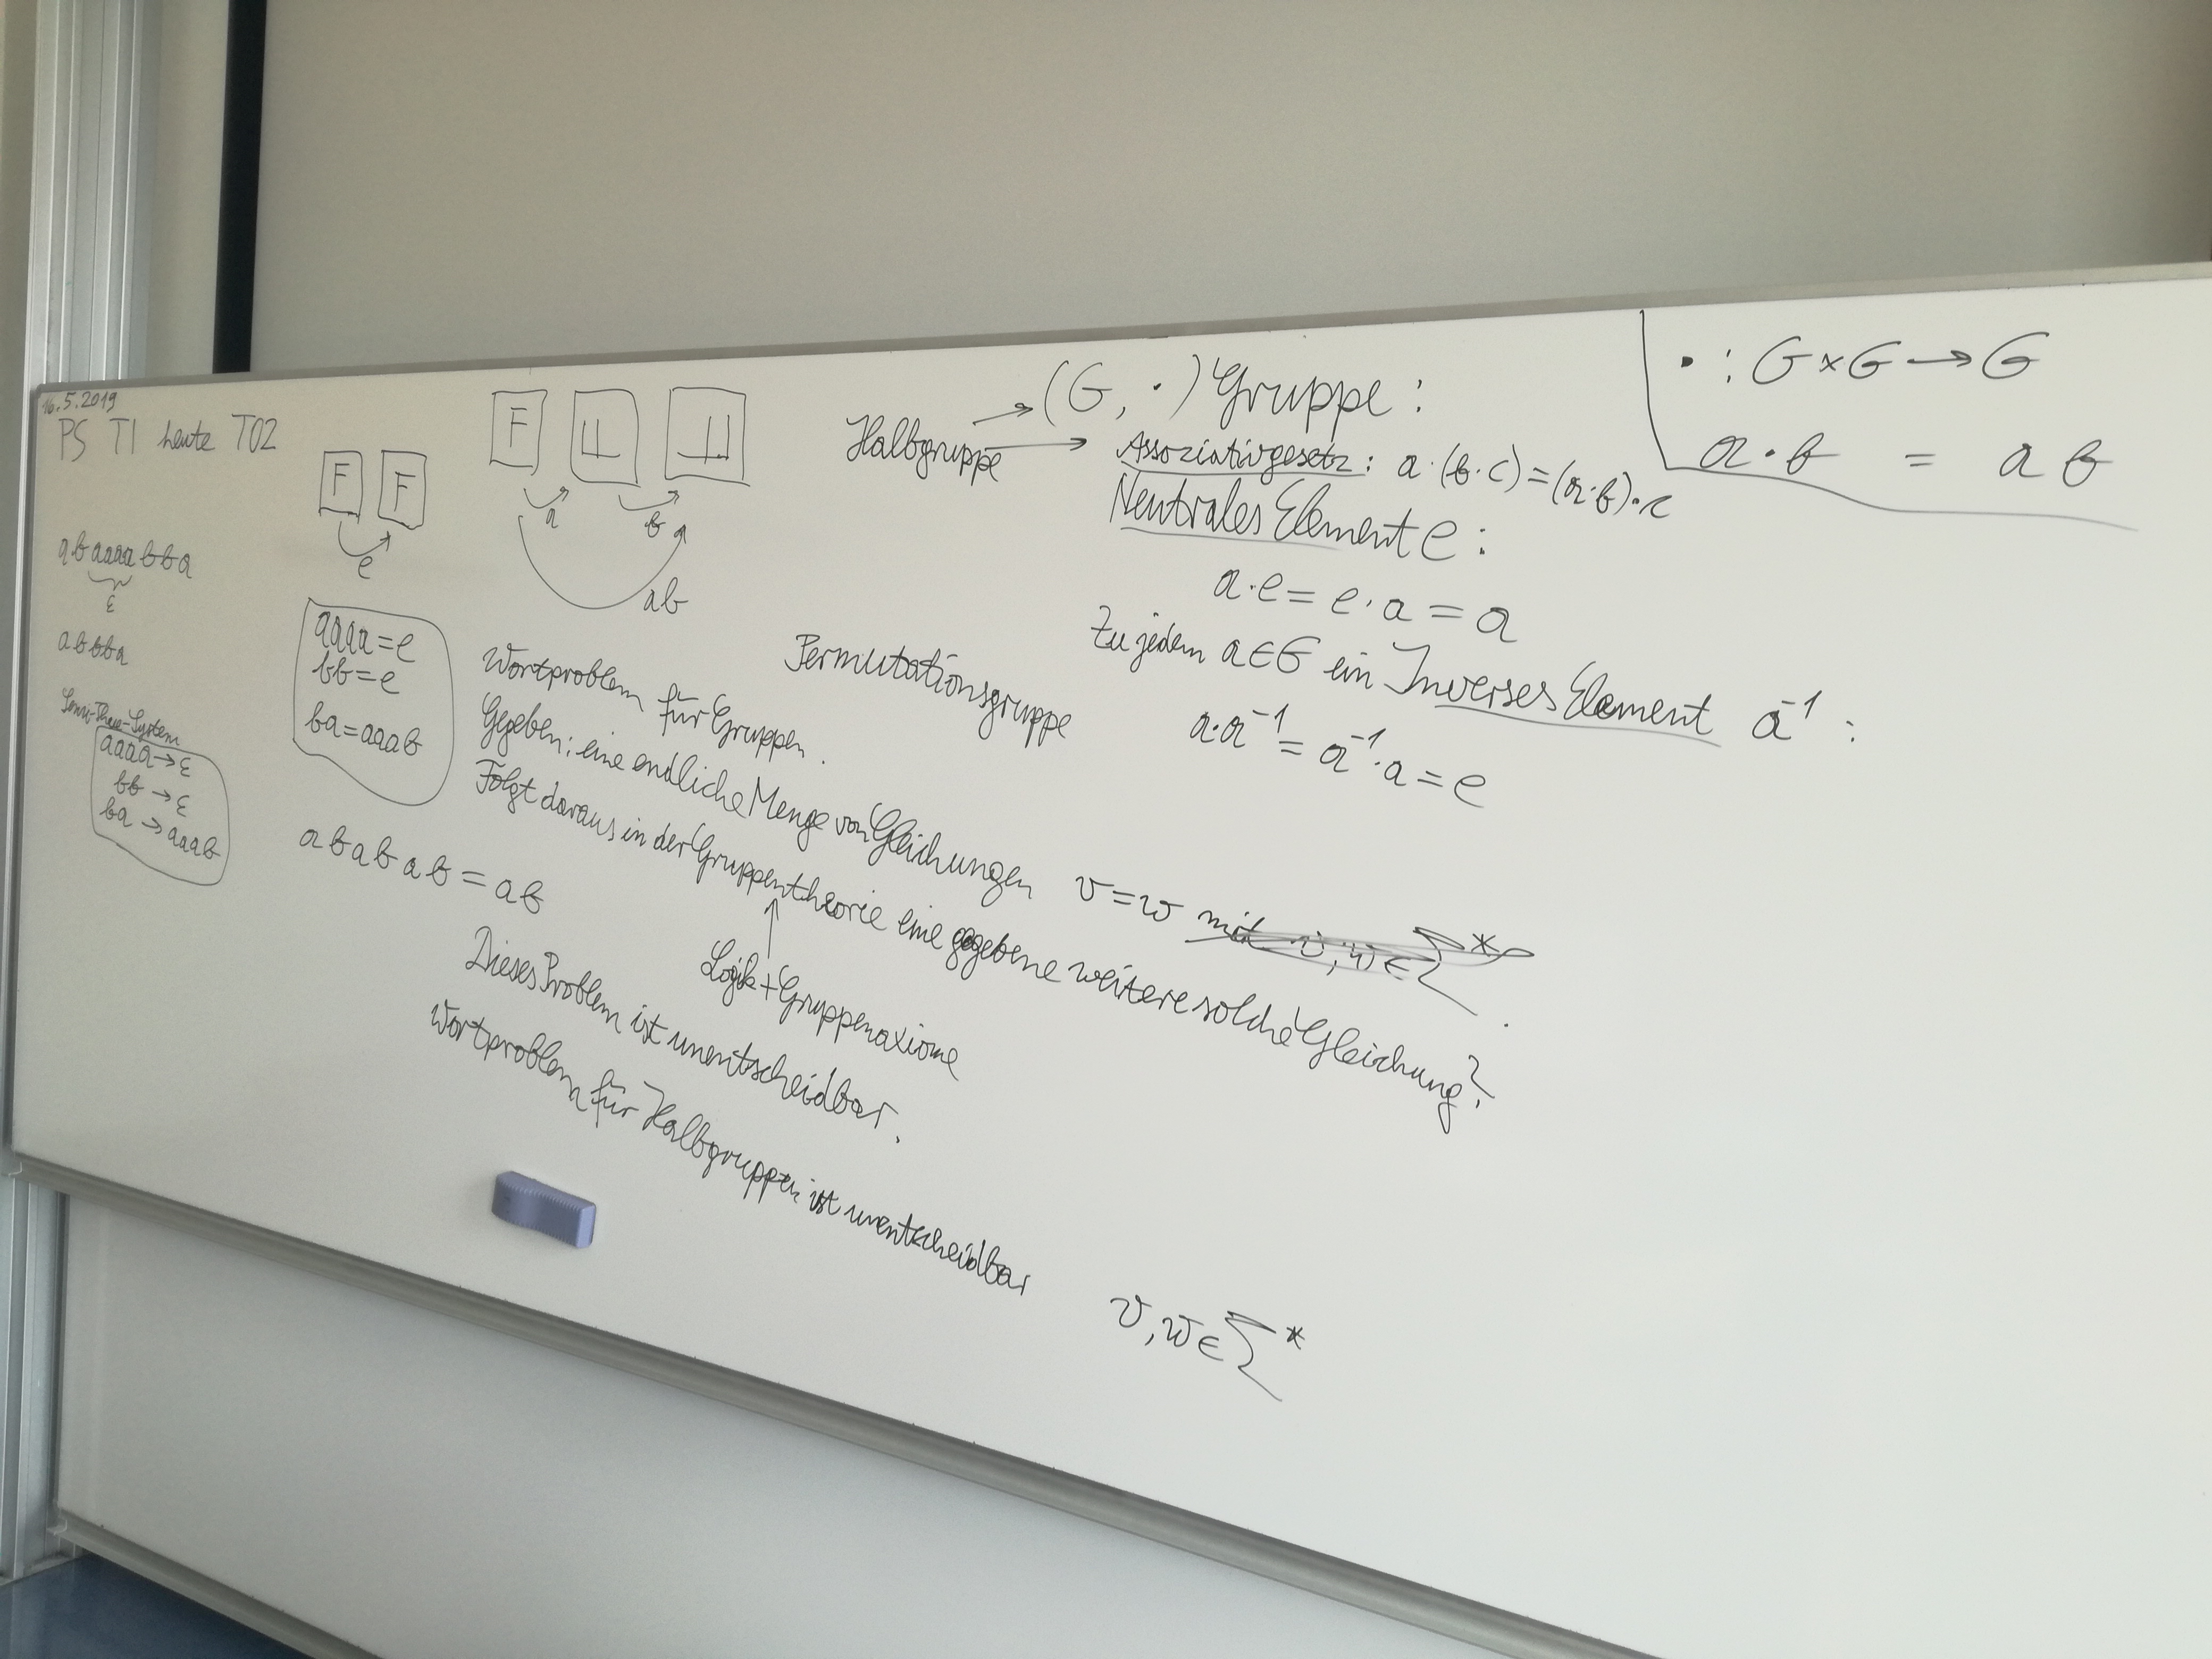 16.5.2019
PS TI heute T02
F F
e
F
a b
ab
abaaaabba
ε
abbba
Semi-Thue-System
aaaa→ε
bb→ε
ba→aaab
aaaa=e
bb=e
ba=aaab
ababab=ab
Halbgruppe
(G, ·) Gruppe:
Assoziativgesetz: a·(b·c)=(a·b)·c
Neutrales Element e:
a·e=e·a=a
Zu jedem a∈G ein Inverses Element a⁻¹:
a·a⁻¹=a⁻¹·a=e
· : G×G→G
a·b = ab
Permutationsgruppe
Wortproblem für Gruppen.
Gegeben: eine endliche Menge von Gleichungen v=w mit v,w∈Σ*.
Folgt daraus in der Gruppentheorie eine gegebene weitere solche Gleichung?
Logik+Gruppenaxiome
Dieses Problem ist unentscheidbar.
Wortproblem für Halbgruppen ist unentscheidbar
v,w∈Σ*